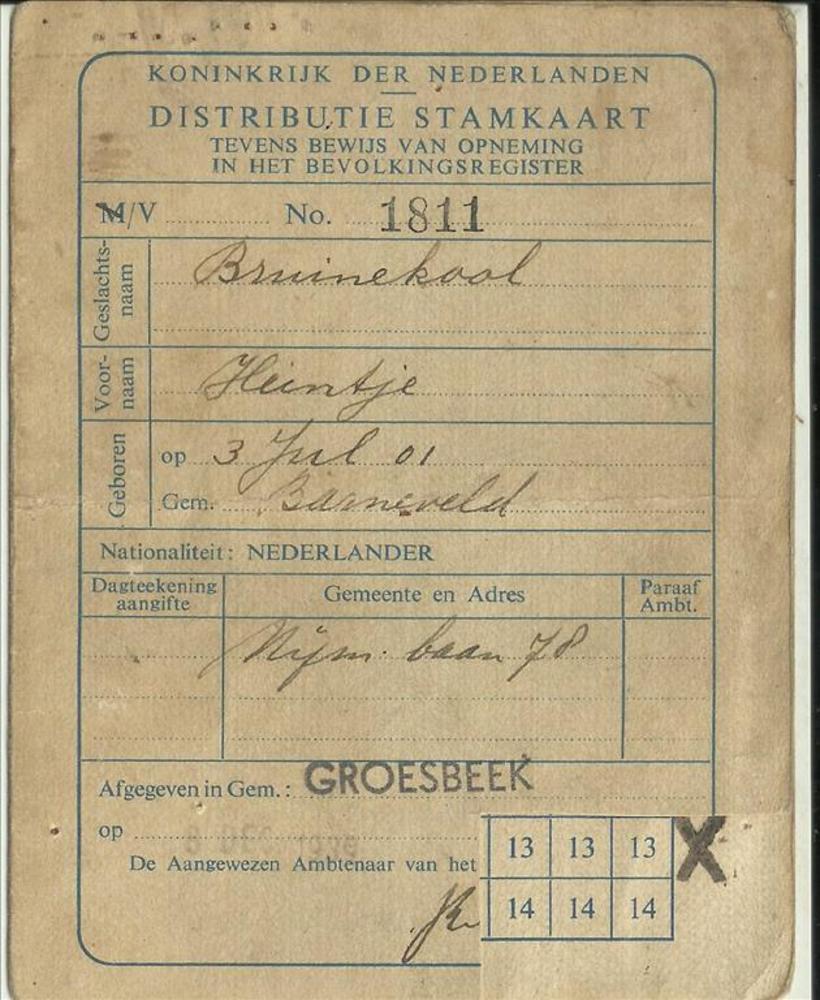 KONINKRIJK DER NEDERLANDEN
DISTRIBUTIE STAMKAART
TEVENS BEWIJS VAN OPNEMING
IN HET BEVOLKINGSREGISTER
M/V No. 1811
Geslachts-
naam
Bruinekool
Voor-
naam
Heintje
Geboren
op 3 Jul 01
Gem. Barneveld
Nationaliteit: NEDERLANDER
Dagteekening
aangifte
Gemeente en Adres
Paraaf
Ambt.
Nijm. baan 78
Afgegeven in Gem.: GROESBEEK
op
De Aangewezen Ambtenaar van het
13 13 13 X
14 14 14